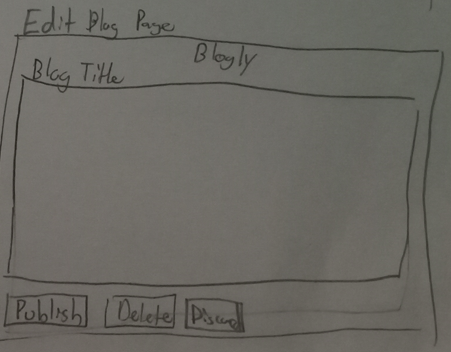 Edit Blog Page
Blogly
Blog Title
Publish Delete Discard